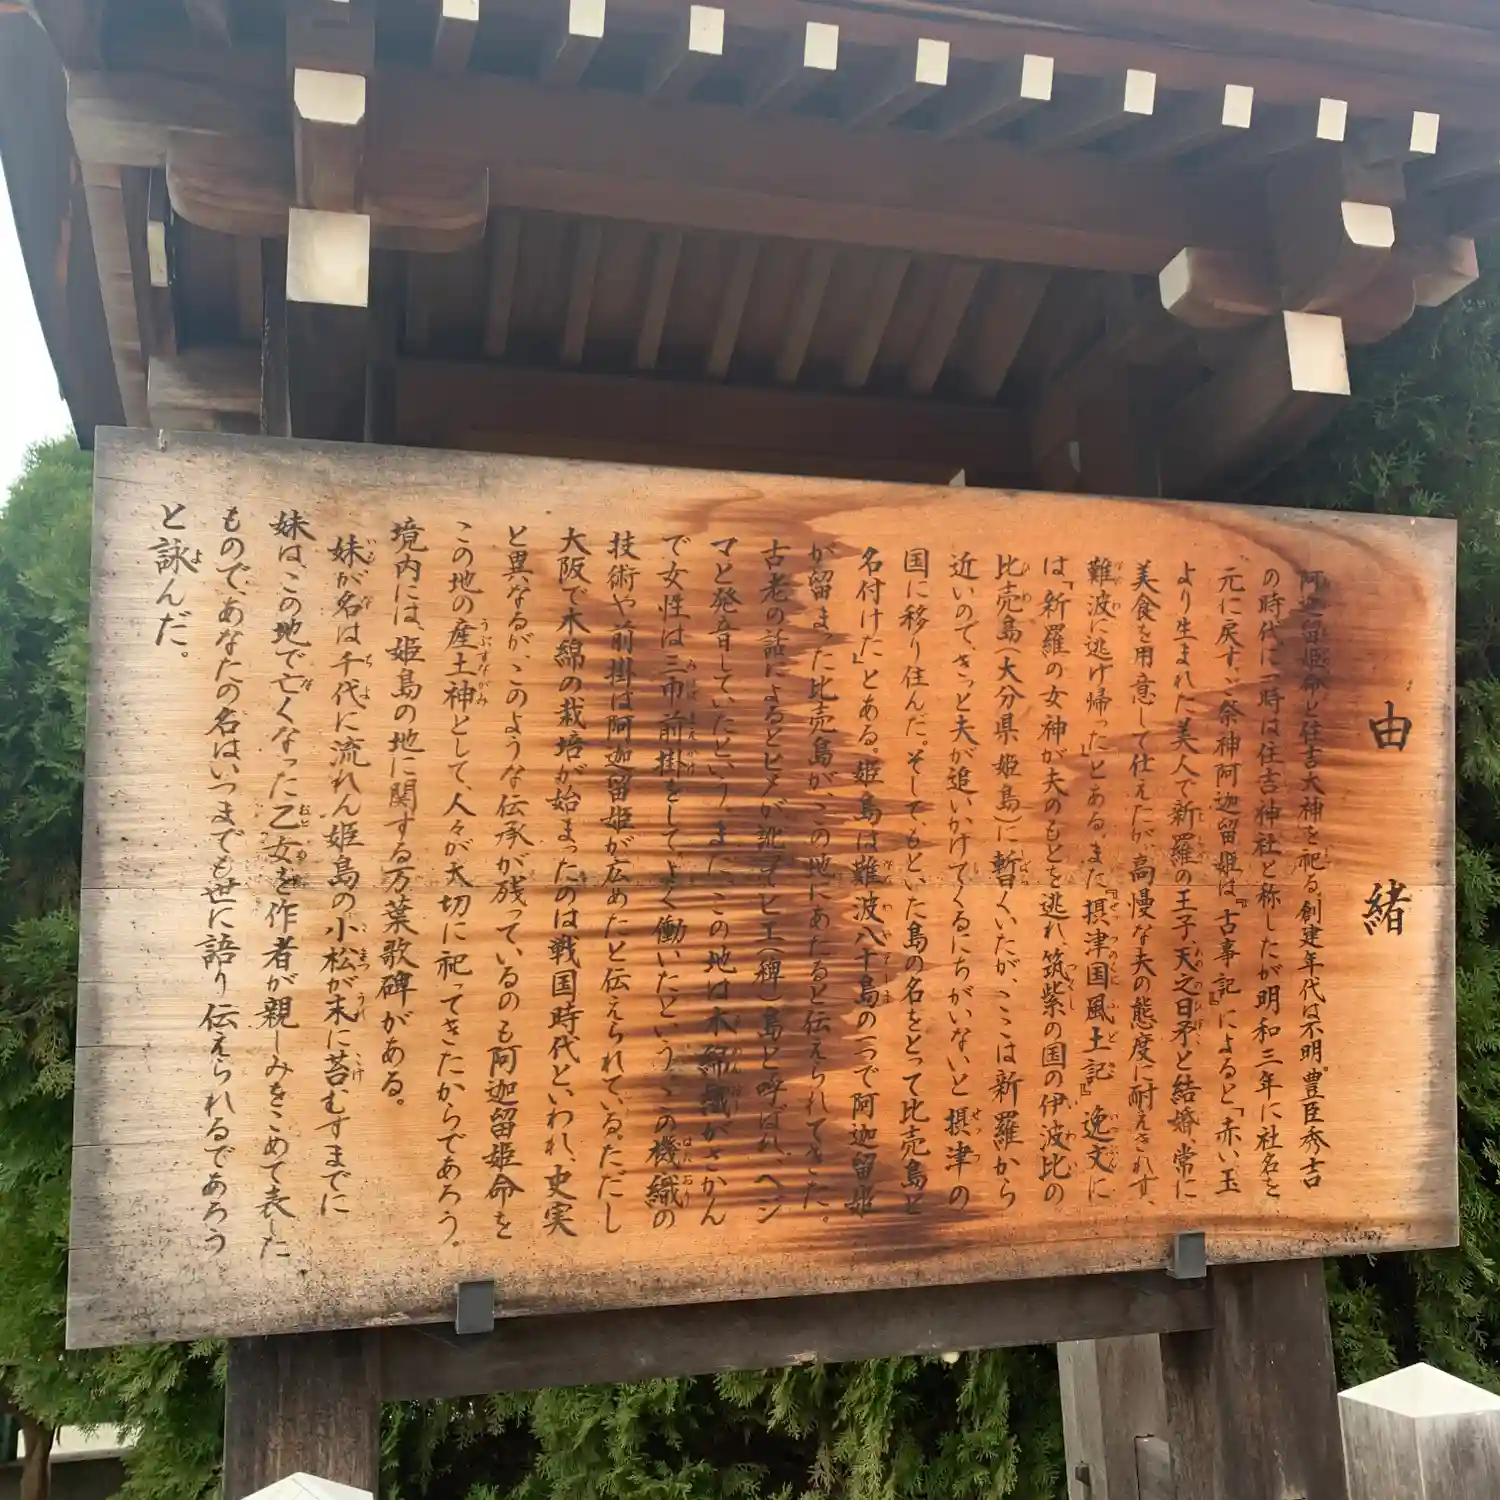 由緒
阿迦留姫命と住吉大神を祀る。創建年代は不明。豊臣秀吉
の時代に一時は住吉神社と称したが明和三年に社名を
元に戻す。ご祭神阿迦留姫は、『古事記』によると「赤い玉
より生まれた美人で新羅の王子、天之日矛と結婚、常に
美食を用意して仕えたが、高慢な夫の態度に耐えきれず、
難波に逃げ帰った」とある。また『摂津国風土記』逸文に
は「新羅の女神が夫のもとを逃れ、筑紫の国の伊波比の
比売島(大分県姫島)に暫くいたが、ここは新羅から
近いので、きっと夫が追いかけてくるにちがいないと摂津の
国に移り住んだ。そして、もといた島の名をとって比売島と
名付けた」とある。姫島は難波八十島の一つで阿迦留姫
が留まった比売島が、この地にあたると伝えられてきた。
古老の話によるとヒメが訛ってヒエ(稗)島と呼ばれ、ヘジ
マと発音していたという。また、この地は木綿織がさかん
で女性は三巾前掛をしてよく働いたという。この機織の
技術や前掛は阿迦留姫が広めたと伝えられている。ただし
大阪で木綿の栽培が始まったのは戦国時代といわれ、史実
と異なるが、このような伝承が残っているのも阿迦留姫命を
この地の産土神として、人々が大切に祀ってきたからであろう。
境内には、姫島の地に関する万葉歌碑がある。
妹が名は千代に流れん姫島の小松が末に苔むすまでに
妹は、この地で亡くなった乙女を作者が親しみをこめて表した
もので、あなたの名はいつまでも世に語り伝えられるであろう
と詠んだ。